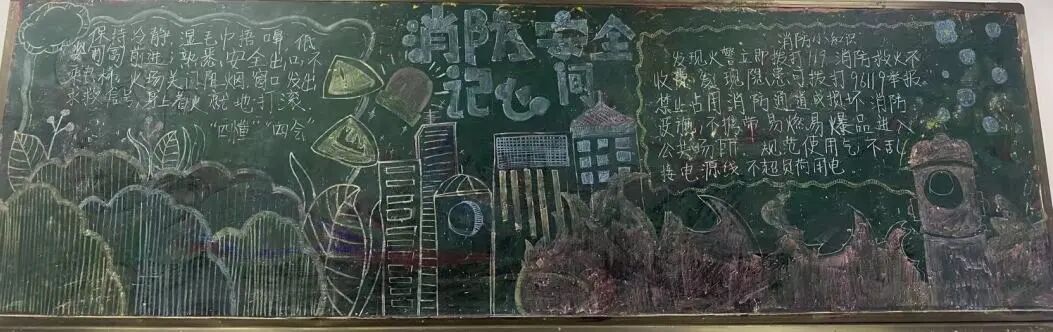 消防安全
记心间
保持冷静 湿毛巾捂嘴 低
匍匐前进 熟悉安全出口 不
乘电梯 火场关门阻烟 窗口发出
求救信号 身上着火就地打滚
"四懂""四会"
消防小知识
发现火警立即拨打119 消防救火不
收费 发现隐患可拨打96119举报
禁止占用消防通道或损坏消防
设施 不携带易燃易爆品进入
公共场所 规范使用气 不乱
接电源线 不超负荷用电